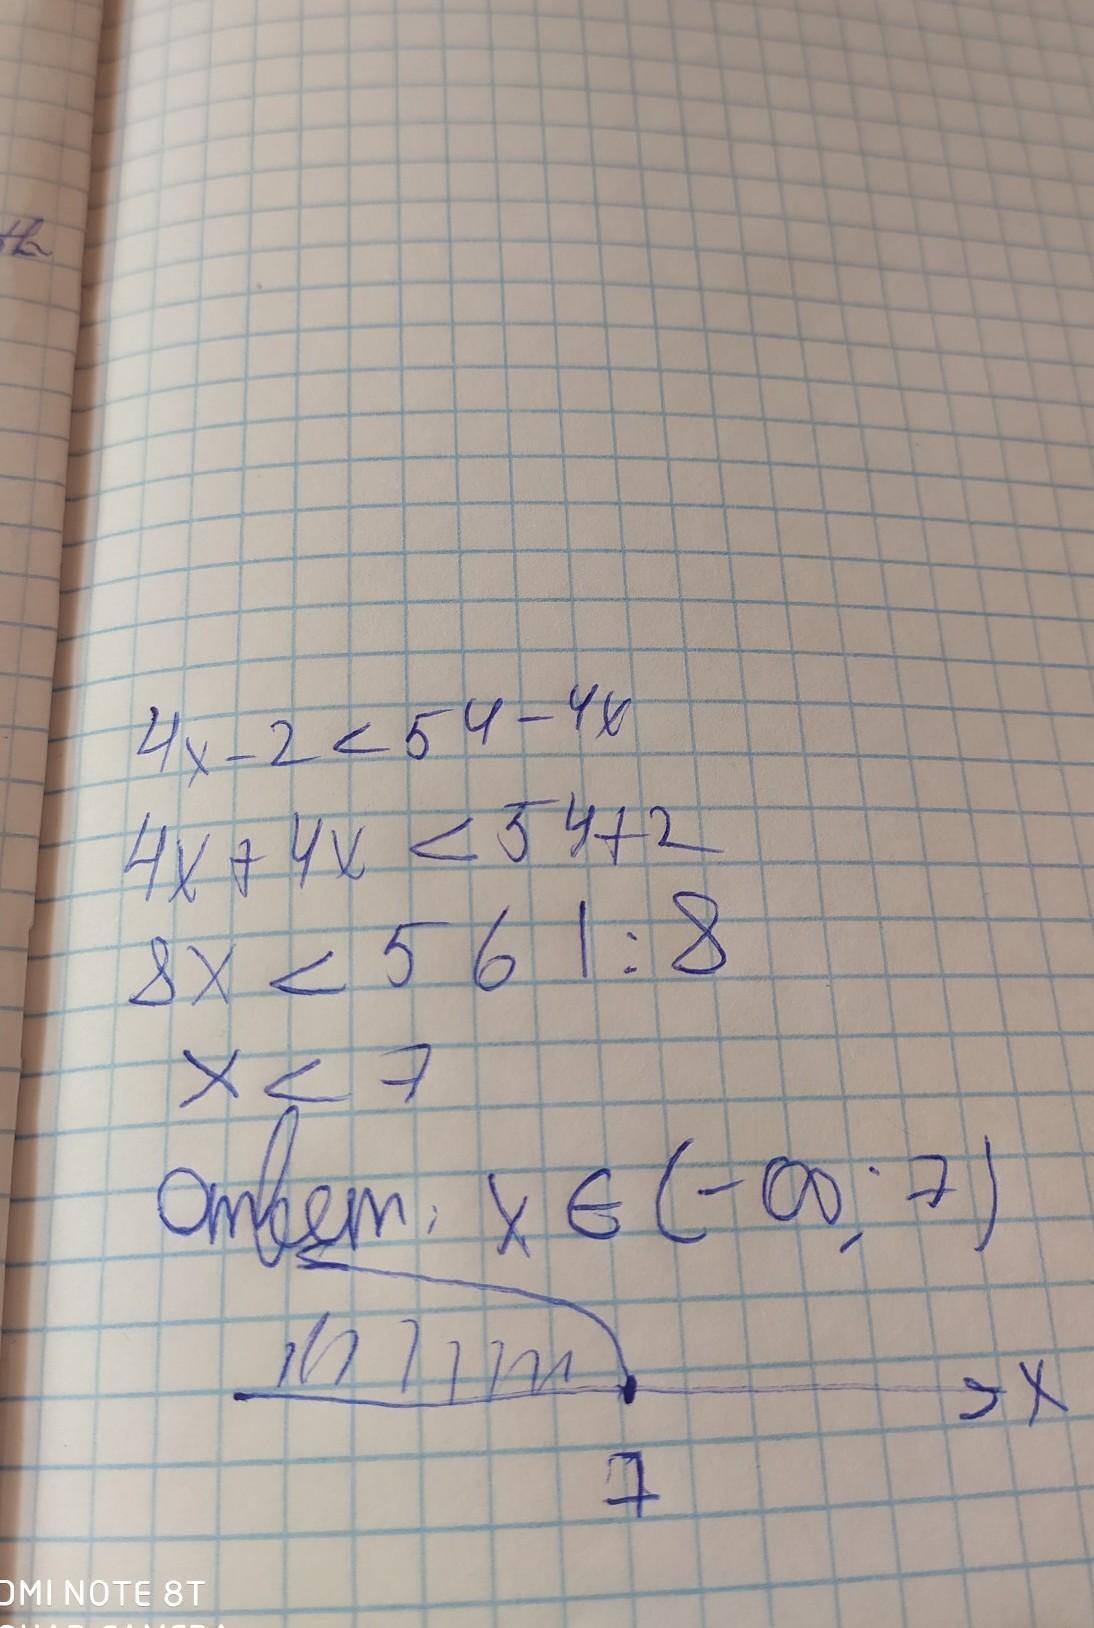 4x-2<54-4x
4x+4x<54+2
8x<56 |:8
x<7
Ответ: x∈(-∞;7)
x
7
DMI NOTE 8T